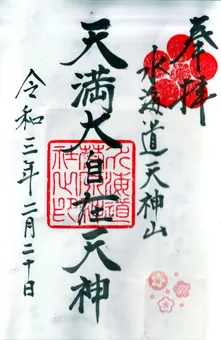 奉拝
水海道天神山
天満大自在天神
令和三年二月二十日